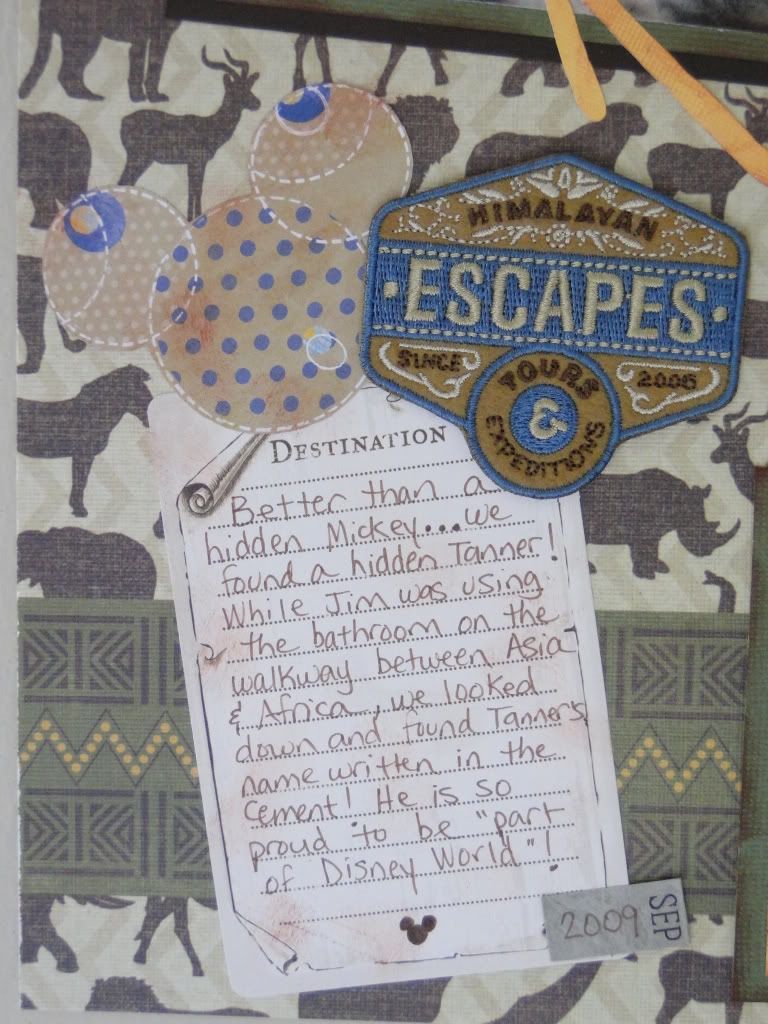 HIMALAYAN
·ESCAPES·
SINCE 2006
TOURS
&
EXPEDITIONS
DESTINATION
Better than a
hidden Mickey...we
found a hidden Tanner!
While Jim was using
the bathroom on the
walkway between Asia
& Africa, we looked
down and found Tanner's
name written in the
cement! He is so
proud to be "part
of Disney World"!
2009 SEP